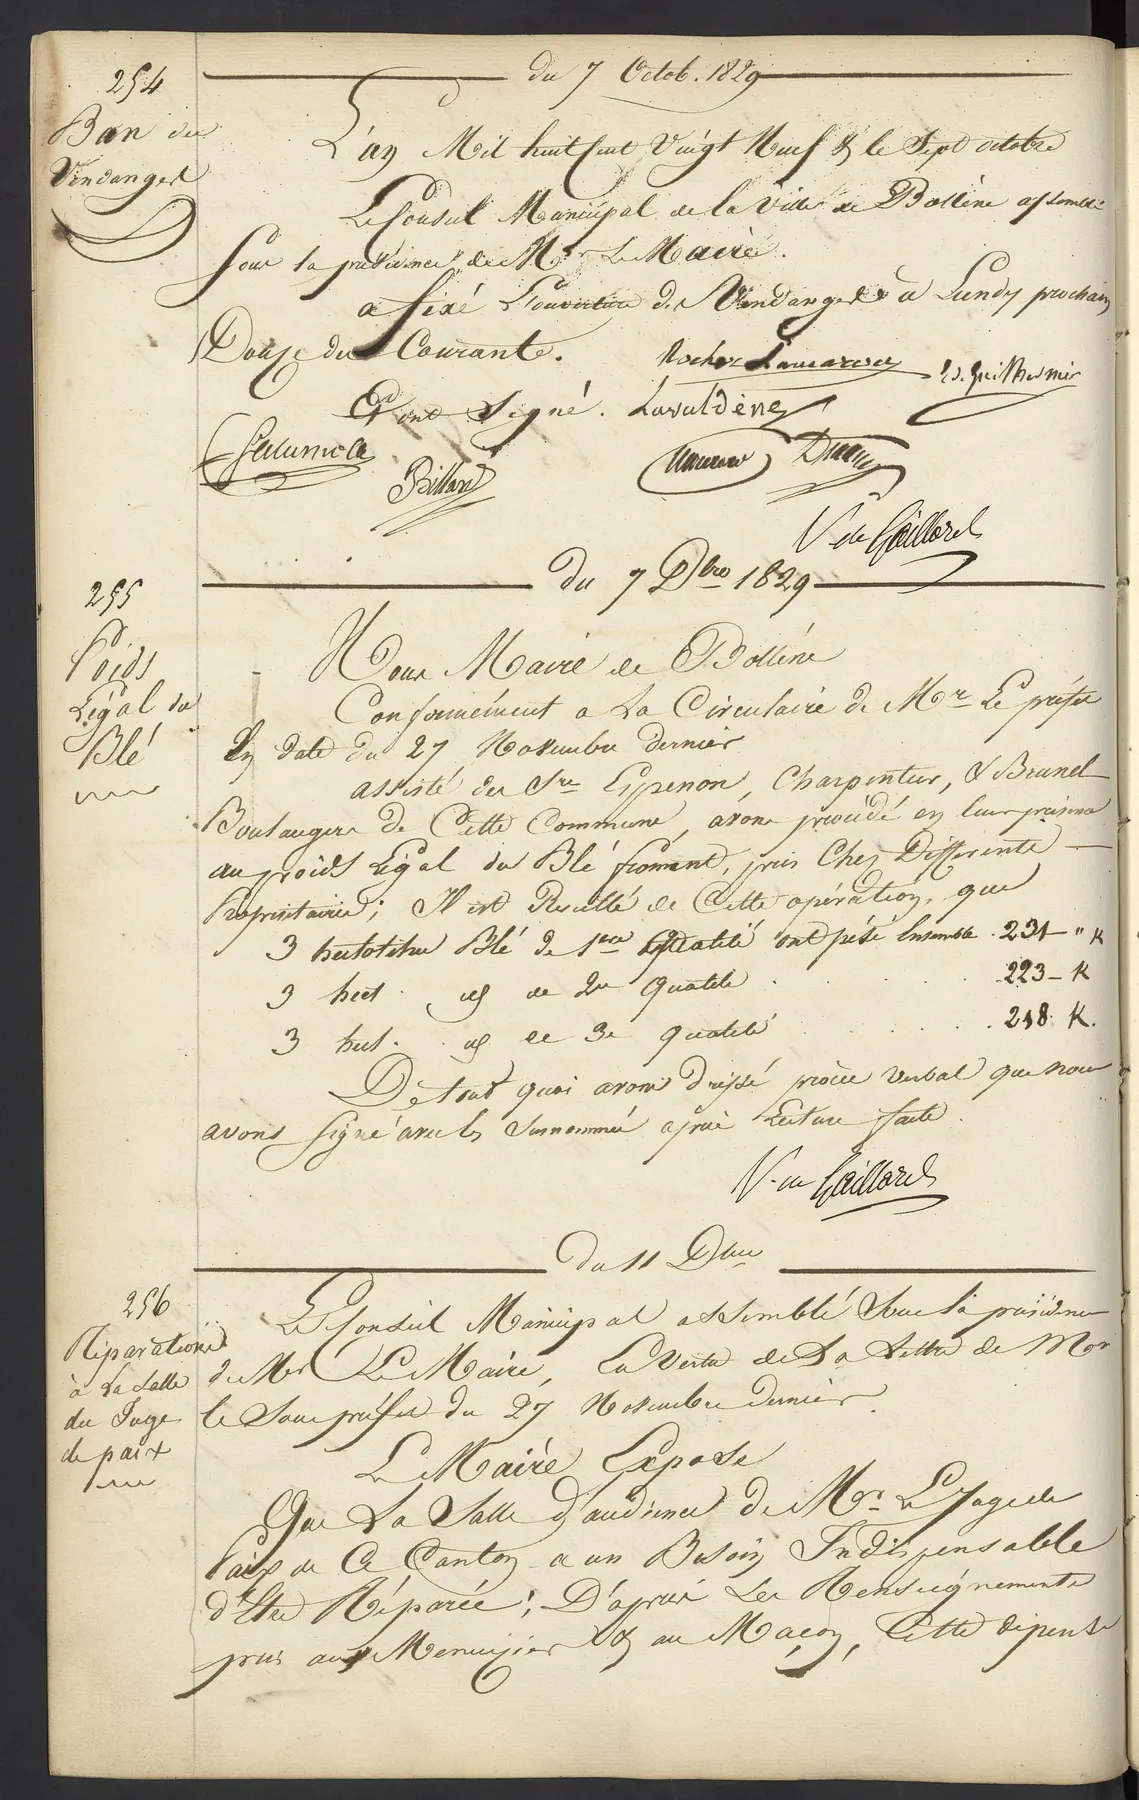 du 7 Octob. 1829
254
Ban des
Vendanges
L'an Mil huit Cent Vingt Neuf & le Sept octobre
Le Conseil Municipal de la Ville de Bollène assemblé
Sous la présidence de Mr Le Maire.
a fixé L'ouverture des Vendanges à Lundy prochain
Douze du Courant.
Et ont Signé. Lavaldène
Billard
V. de Gaillard
du 7 Dbre 1829
255
Poids
Légal du
Blé
Nous Maire de Bollène
Conformément a La Circulaire de Mr Le préfet
En date du 27 Novembre dernier
assisté des Srs Espenon, Charpentier, & Brunel
Boulangers de Cette Commune, avons procédé en leur présence
au poids Légal du Blé froment, pris Chez Differents
Propriétaires; Il est Resulté de Cette opération, que
3 hectolitres Blé de 1ere Qualité ont pésé Ensemble . 231 - " K
3 hect. id de 2e Qualité . . . . 223 - K
3 hect. id de 3e qualité . . . . . 218. K.
De tout quoi avons dressé procès verbal que nous
avons signé avec les Surnommés après Lecture faite.
V. de Gaillard
du 11 Dbre
256
Réparations
à La Salle
du Juge
de paix
Le Conseil Municipal assemblé Sous la présidence
de Mr Le Maire, En Vertu de La Lettre de Mr
le Sous préfet du 27 Novembre dernier.
Le Maire Expose
Que La Salle d'audience de Mr Le Juge de
Paix de Ce Canton a un Besoin Indispensable
d'Etre Réparée; D'après Les Renseignements
pris au Menuisier & au Maçon, Cette dépense